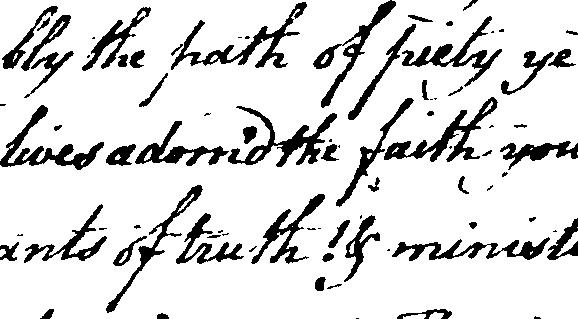 bly the path of piety ye
lives adorn'd the faith you
ants of truth! & ministe